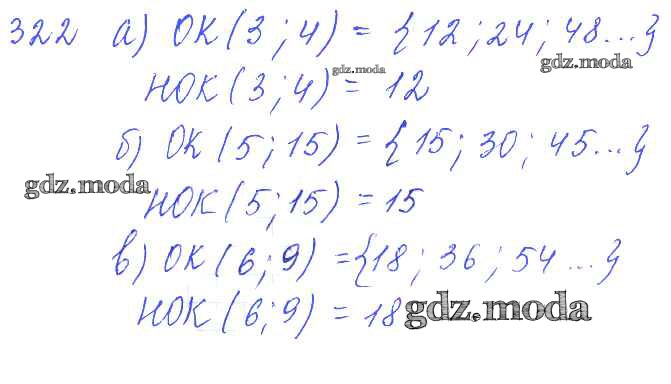 322 а) ОК(3;4) = {12;24;48...}
gdz.moda
gdz.moda
НОК(3;4) = 12
б) ОК(5;15) = {15;30;45...}
gdz.moda
НОК(5;15) = 15
в) ОК(6;9) = {18;36;54...}
НОК(6;9) = 18
gdz.moda